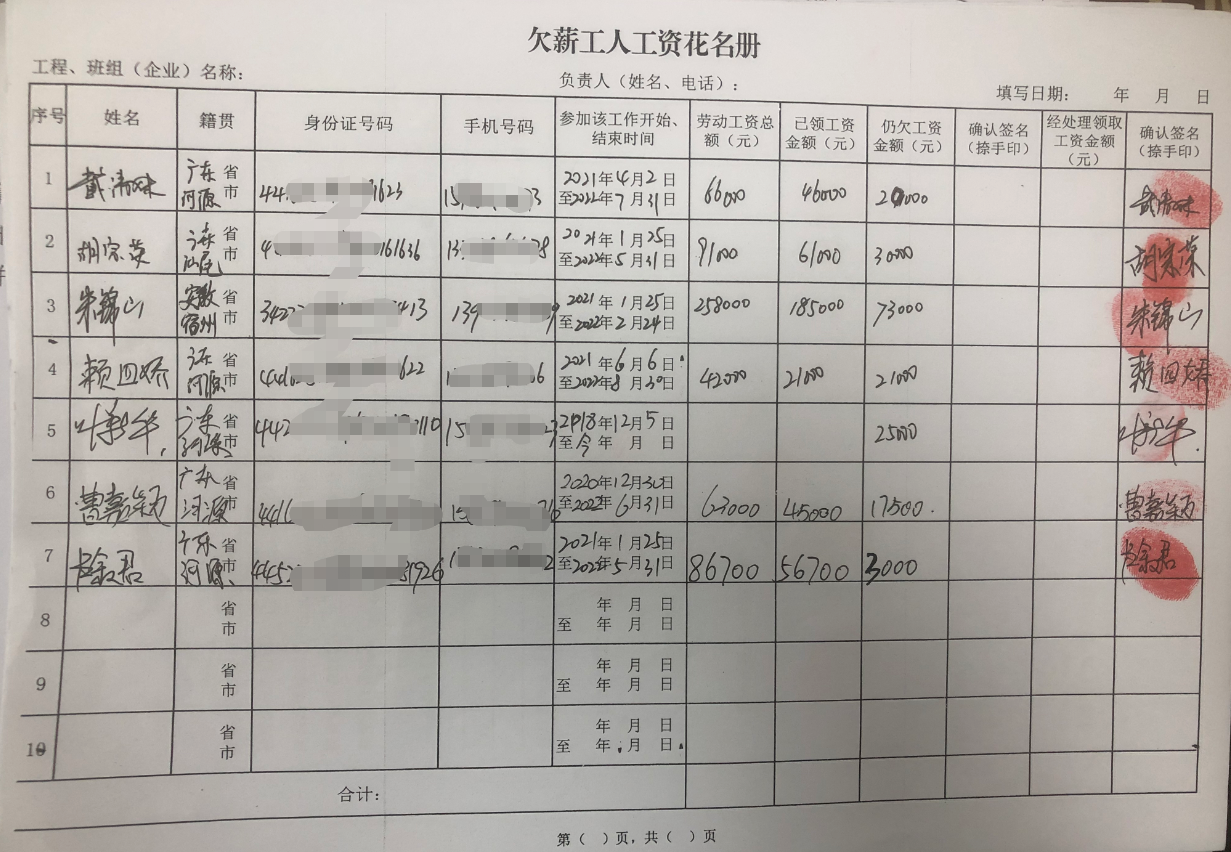 欠薪工人工资花名册
工程、班组（企业）名称：
负责人（姓名、电话）：
填写日期： 年 月 日
序号 姓名 籍贯 身份证号码 手机号码 参加该工作开始、结束时间 劳动工资总额（元） 已领工资金额（元） 仍欠工资金额（元） 确认签名（捺手印） 经处理领取工资金额（元） 确认签名（捺手印）
1 广东省河源市 1623 2021年4月2日至2022年7月31日 66000 46000 20000
2 胡宗荣 广东省汕尾市 161636 2021年1月25日至2022年5月31日 91000 61000 30000 胡宗荣
3 朱锦山 安徽省宿州市 413 139 2021年1月25日至2022年2月24日 258000 185000 73000 朱锦山
4 赖四娇 广东省河源市 622 2021年6月6日至2022年8月30日 42000 21000 21000 赖四娇
5 广东省河源市 442 2018年12月5日至今年 月 日 25000
6 曹嘉颖 广东省河源市 4416 2020年12月30日至2022年6月31日 63000 45000 17500. 曹嘉颖
7 广东省河源市 445 31926 2021年1月25日至2022年5月31日 86700 56700 3000
8 省市 年 月 日至 年 月 日
9 省市 年 月 日至 年 月 日
10 省市 年 月 日至 年 月 日
合计：
第（ ）页，共（ ）页